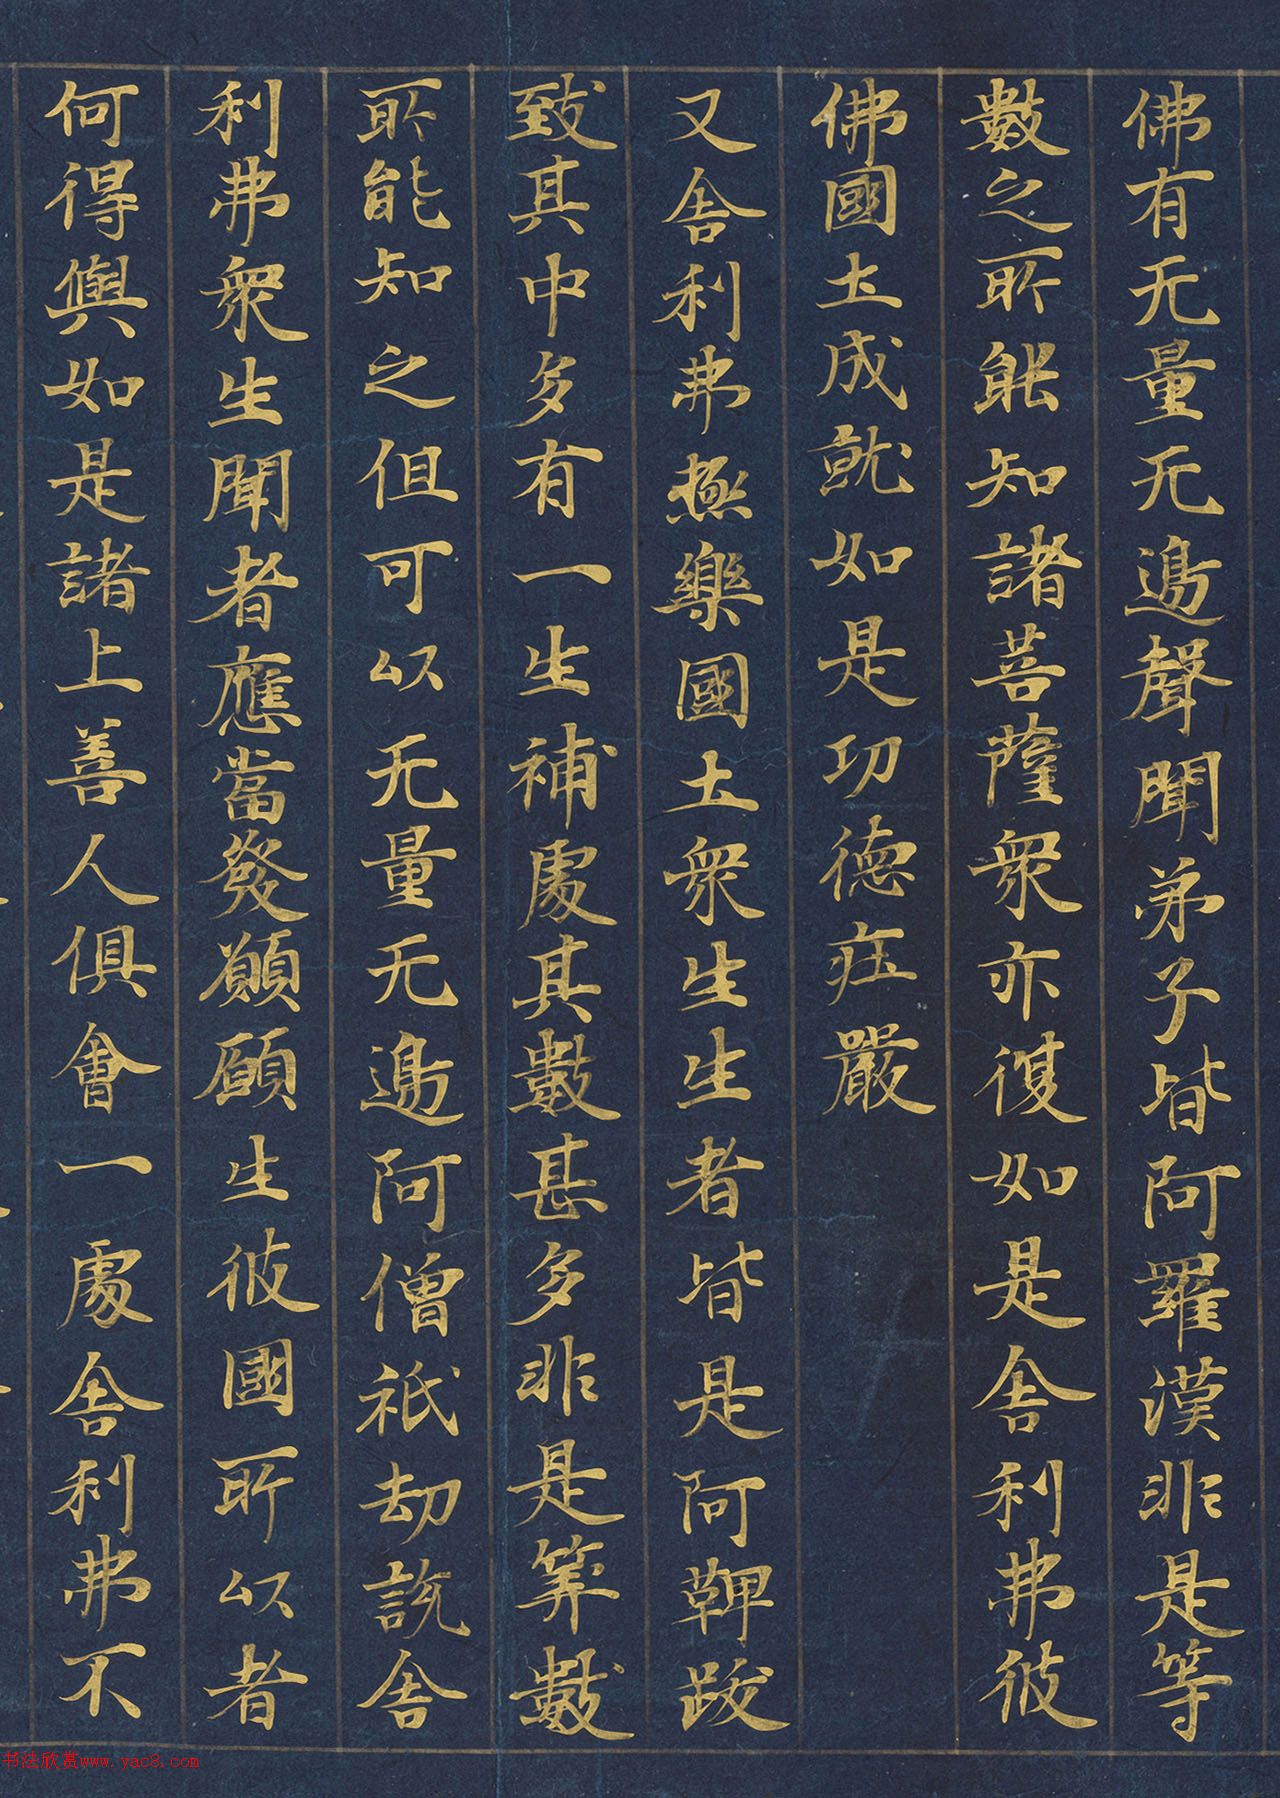 佛有无量无邊聲聞弟子皆阿羅漢非是等
數之所能知諸菩薩衆亦復如是舍利弗彼
佛國土成就如是功德莊嚴
又舍利弗極樂國土衆生生者皆是阿鞞跋
致其中多有一生補處其數甚多非是筭數
所能知之但可以无量无邊阿僧祇劫說舍
利弗衆生聞者應當發願願生彼國所以者
何得與如是諸上善人俱會一處舍利弗不
书法欣赏www.yac8.com